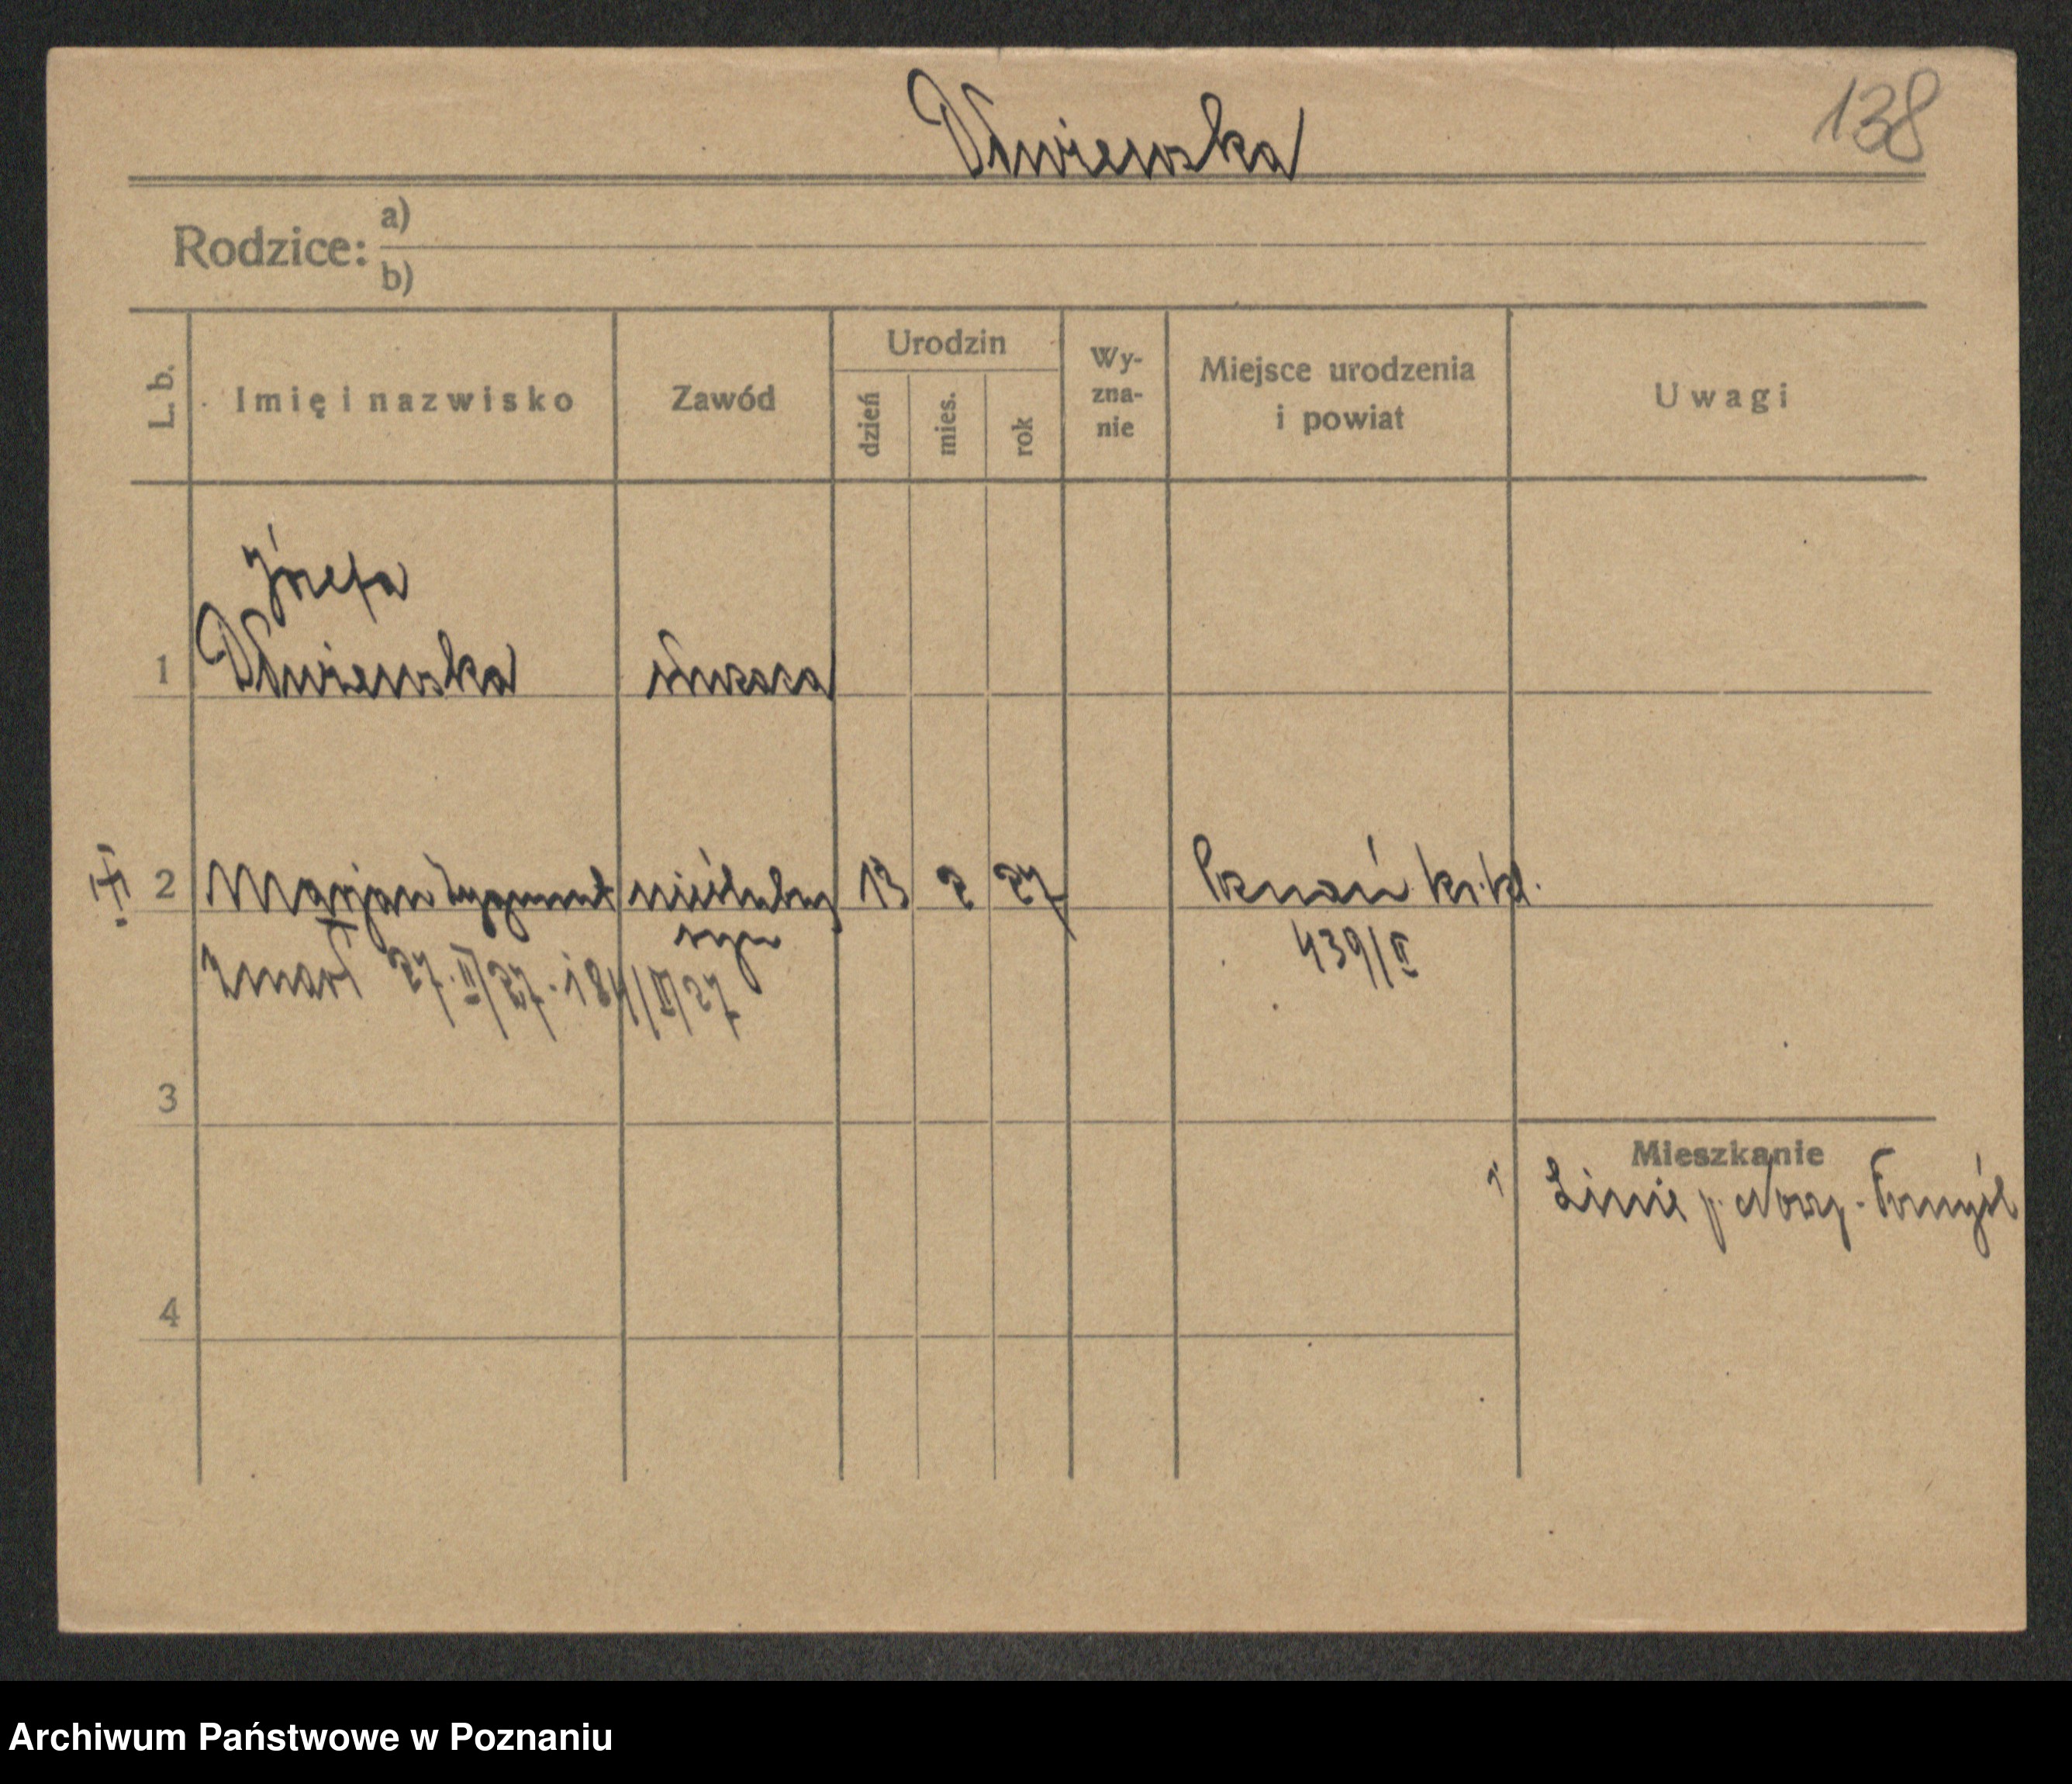 138
Rodzice: a)
b)
L. b.
Imię i nazwisko
Zawód
Urodzin
dzień
mies.
rok
Wy-
zna-
nie
Miejsce urodzenia
i powiat
Uwagi
Józefa
1
2 Marjan Zygmunt nieślubny 13 2 27 Poznań
syn
439/II
Zmarł 27.II/27. 184/II/27
3
Mieszkanie
Linie p. Nowy-Tomyśl
4
Archiwum Państwowe w Poznaniu